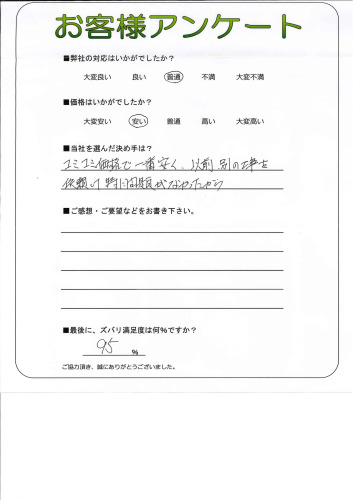 お客様アンケート
■弊社の対応はいかがでしたか?
大変良い 良い 普通 不満 大変不満
■価格はいかがでしたか?
大変安い 安い 普通 高い 大変高い
■当社を選んだ決め手は?
コミコミ価格で一番安く、以前別の工事を
依頼し特に問題がなかったから
■ご感想・ご要望などをお書き下さい。
■最後に、ズバリ満足度は何%ですか?
95 %
ご協力頂き、誠にありがとうございました。